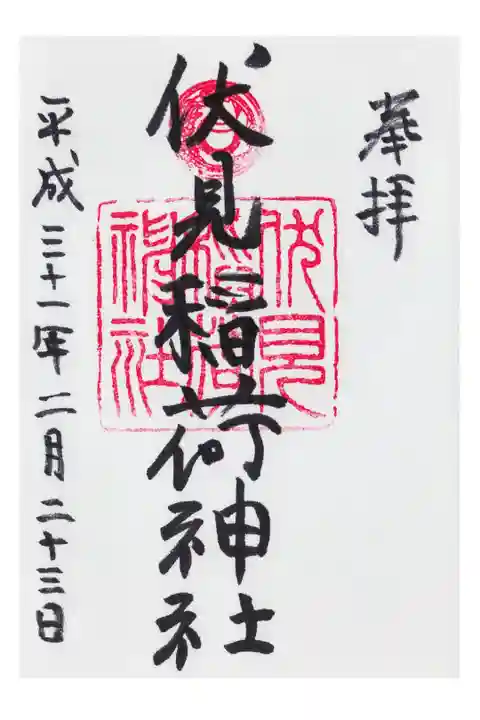 奉拝
伏見稲荷神社
伏見
稲荷
神社
平成三十一年二月二十三日